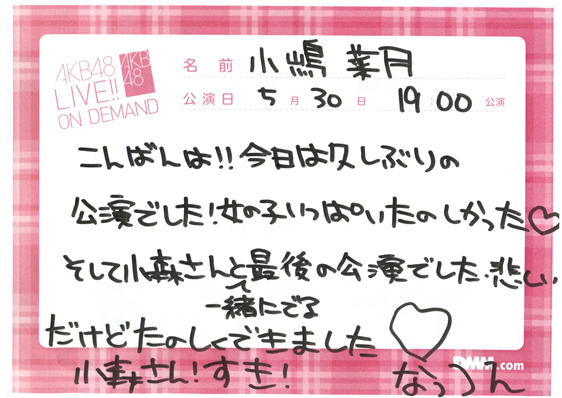 AKB48
LIVE!!
ON DEMAND
AKB
48
名前 小嶋 菜月
公演日 5月30日 19:00 公演
こんばんは!!今日は久しぶりの
公演でした!女の子いっぱいたのしかった♡
そして小森さんと最後の公演でした.悲しい.
一緒にでる
だけどたのしくできました♡
小森さん!すき!
なっつん
DMM.com